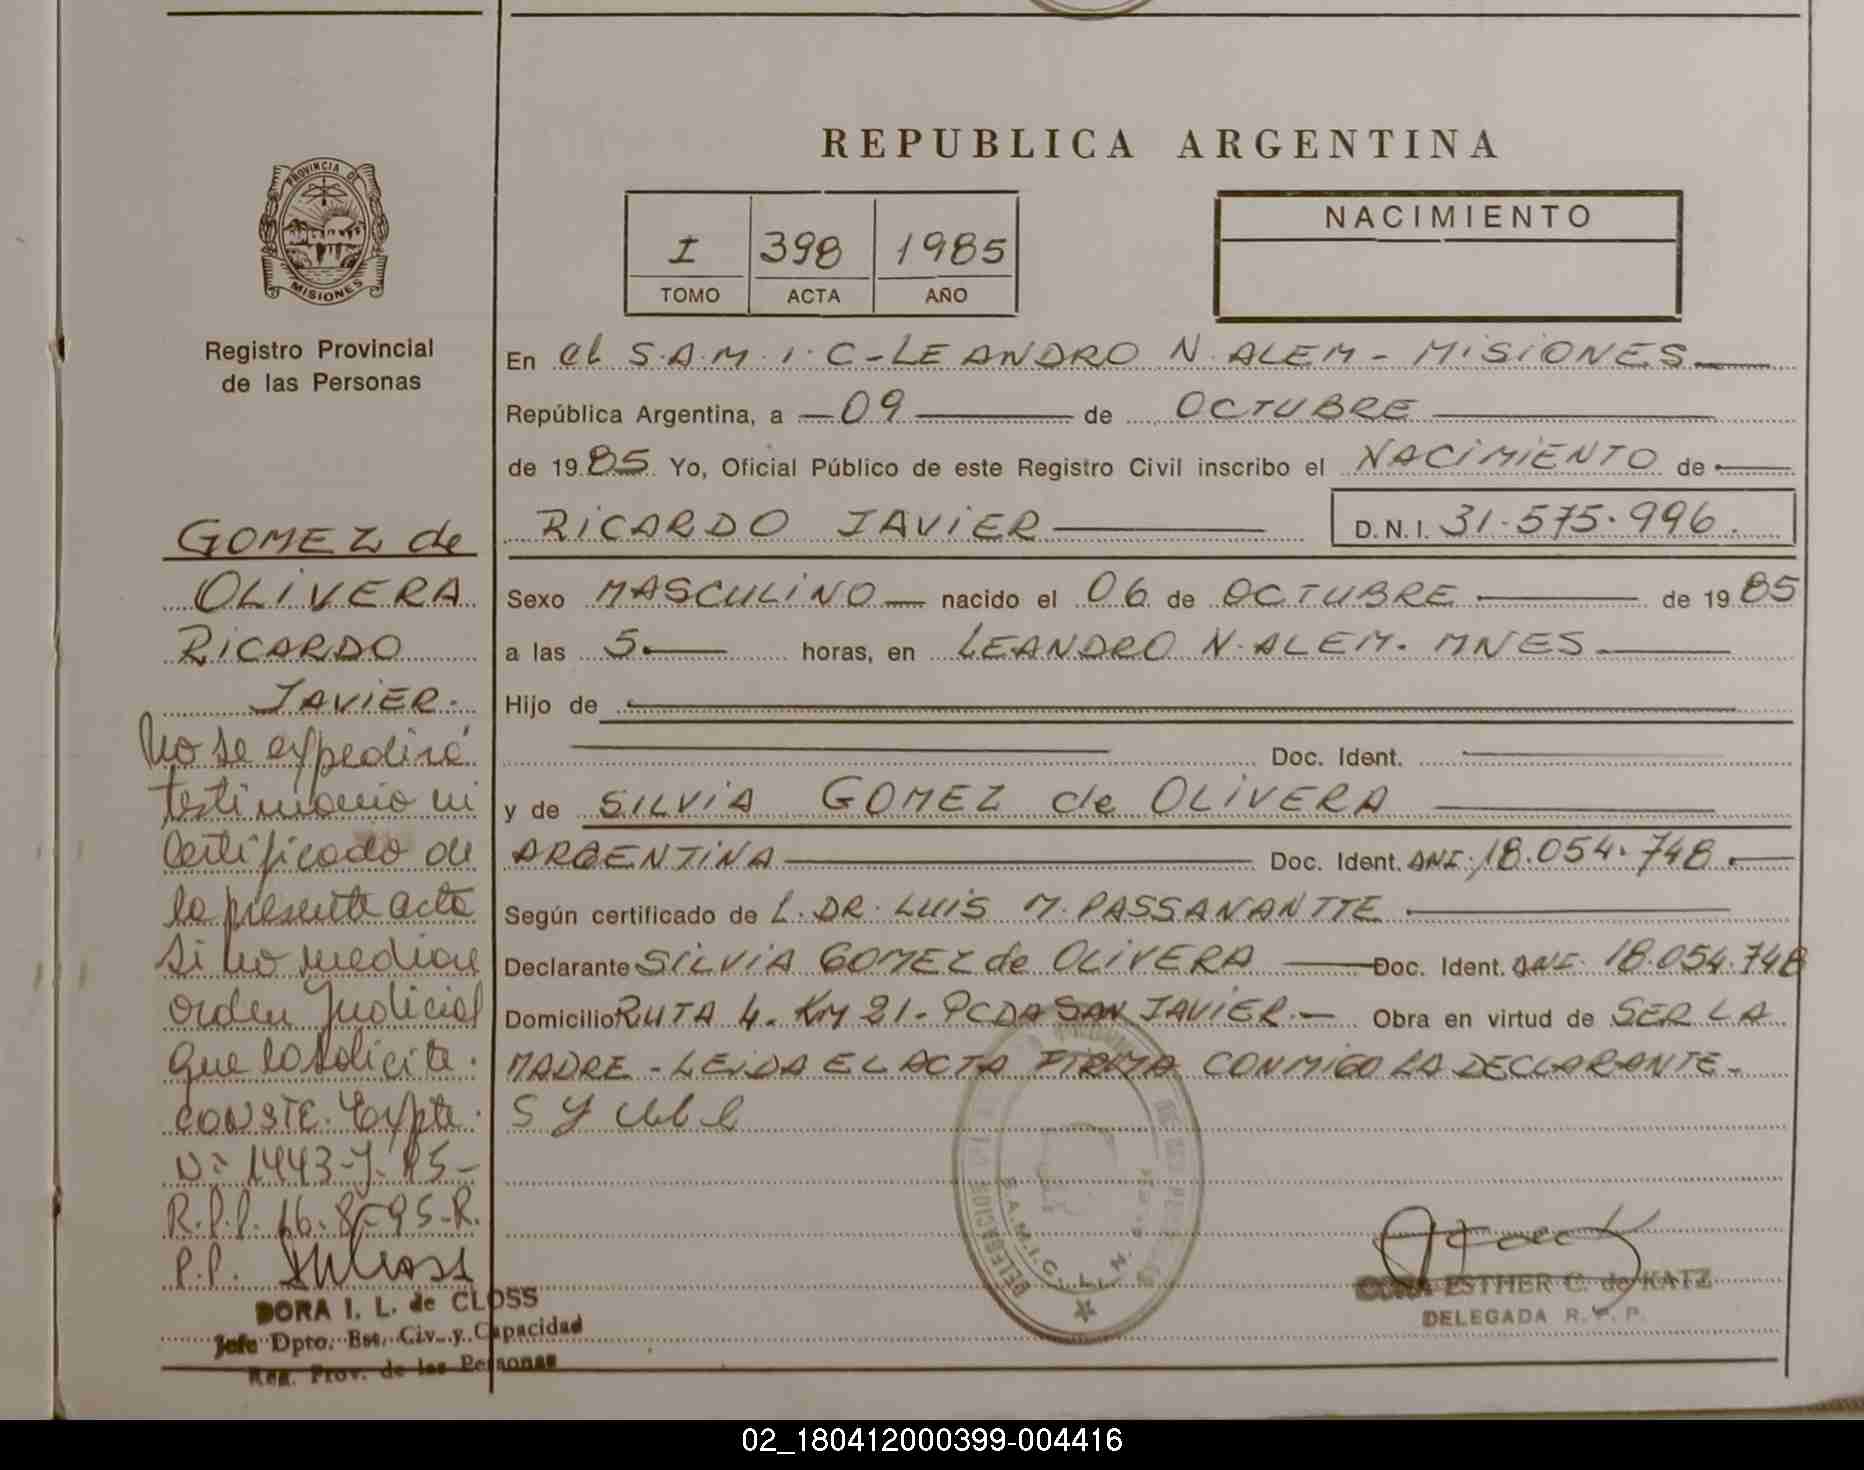 REPUBLICA ARGENTINA
PROVINCIA DE
MISIONES
Registro Provincial
de las Personas
I 398 1985
TOMO ACTA AÑO
NACIMIENTO
En el S.A.M.I.C-LEANDRO N. ALEM - MISIONES
República Argentina, a 09 de OCTUBRE
de 1985 Yo, Oficial Público de este Registro Civil inscribo el NACIMIENTO de
RICARDO JAVIER D.N.I. 31.575.996.
Sexo MASCULINO nacido el 06 de OCTUBRE de 1985
a las 5 horas, en LEANDRO N. ALEM. MNES
Hijo de
Doc. Ident.
y de SILVIA GOMEZ de OLIVERA
ARGENTINA Doc. Ident. DNI. 18.054.748.
Según certificado de L. DR. LUIS M. PASSANANTTE
Declarante SILVIA GOMEZ de OLIVERA Doc. Ident. DNI. 18.054.748
Domicilio RUTA 4. KM 21. PCDA SAN JAVIER.- Obra en virtud de SER LA
MADRE - LEIDA EL ACTA FIRMA CONMIGO LA DECLARANTE.
GOMEZ de
OLIVERA
RICARDO
JAVIER.
No se expedirá
testimonio ni
Certificado de
la presente acta
si no mediare
orden Judicial
que lo solicite.
CONSTE. Expte.
Nº 1443-J-95-
R.P.P. 16-8-95-R.
P.P.
DORA I. L. de CLOSS
Jefe Dpto. Est. Civ. y Capacidad
Reg. Prov. de las Personas
DELEGACION
S.A.M.I.C. L. N.
ESTHER C. de KATZ
DELEGADA R.P.P.
02_180412000399-004416